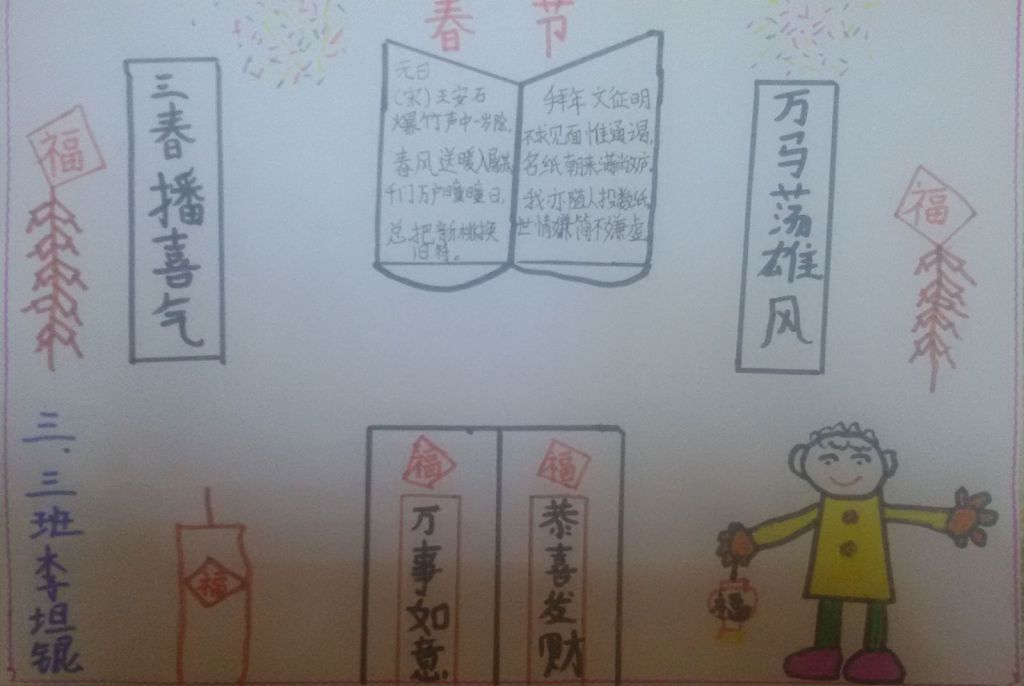 春节
福
三春播喜气
元日
(宋)王安石
爆竹声中一岁除,
春风送暖入屠苏
千门万户曈曈日,
总把新桃换
旧符。
拜年 文征明
不求见面惟通谒,
名纸朝来满敝庐。
我亦随人投数纸,
世情嫌简不嫌虚
万马荡雄风
福
三、三班李坦锟
福
福
万事如意
福
恭喜发财
福